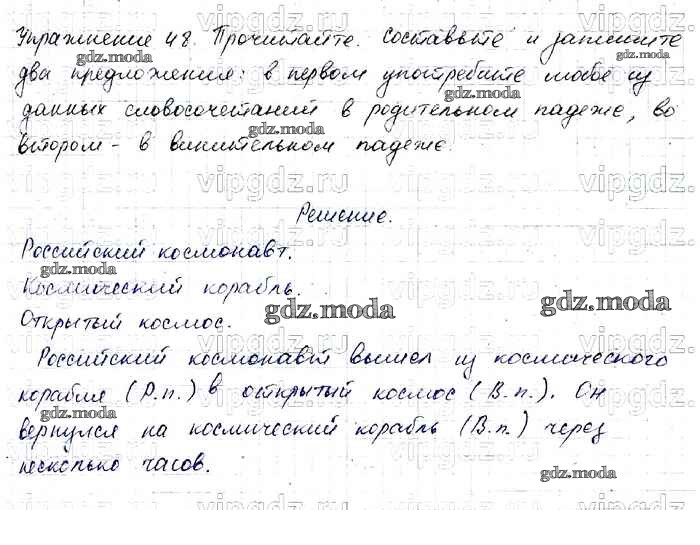 Упражнение 48. Прочитайте. Составьте и запишите
два предложения: в первом употребите любое из
данных словосочетаний в родительном падеже, во
втором - в винительном падеже.
Решение.
Российский космонавт.
Космический корабль.
Открытый космос.
Российский космонавт вышел из космического
корабля (Р.п.) в открытый космос (В.п.). Он
вернулся на космический корабль (В.п.) через
несколько часов.
gdz.moda
vipgdz.ru